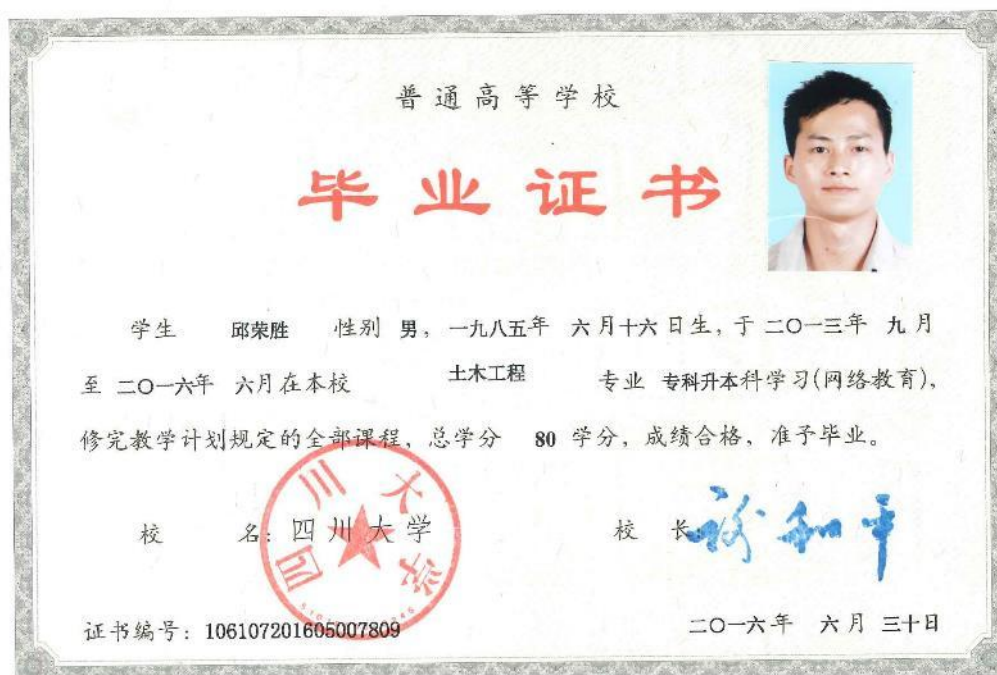 普通高等学校
毕业证书
学生 邱荣胜 性别 男，一九八五年 六月十六日生，于二〇一三年 九月
至二〇一六年 六月在本校 土木工程 专业 专科升本科学习(网络教育)，
修完教学计划规定的全部课程，总学分 80 学分，成绩合格，准予毕业。
校 名：四川大学 校 长
四川大学
证书编号：106107201605007809 二〇一六年 六月 三十日